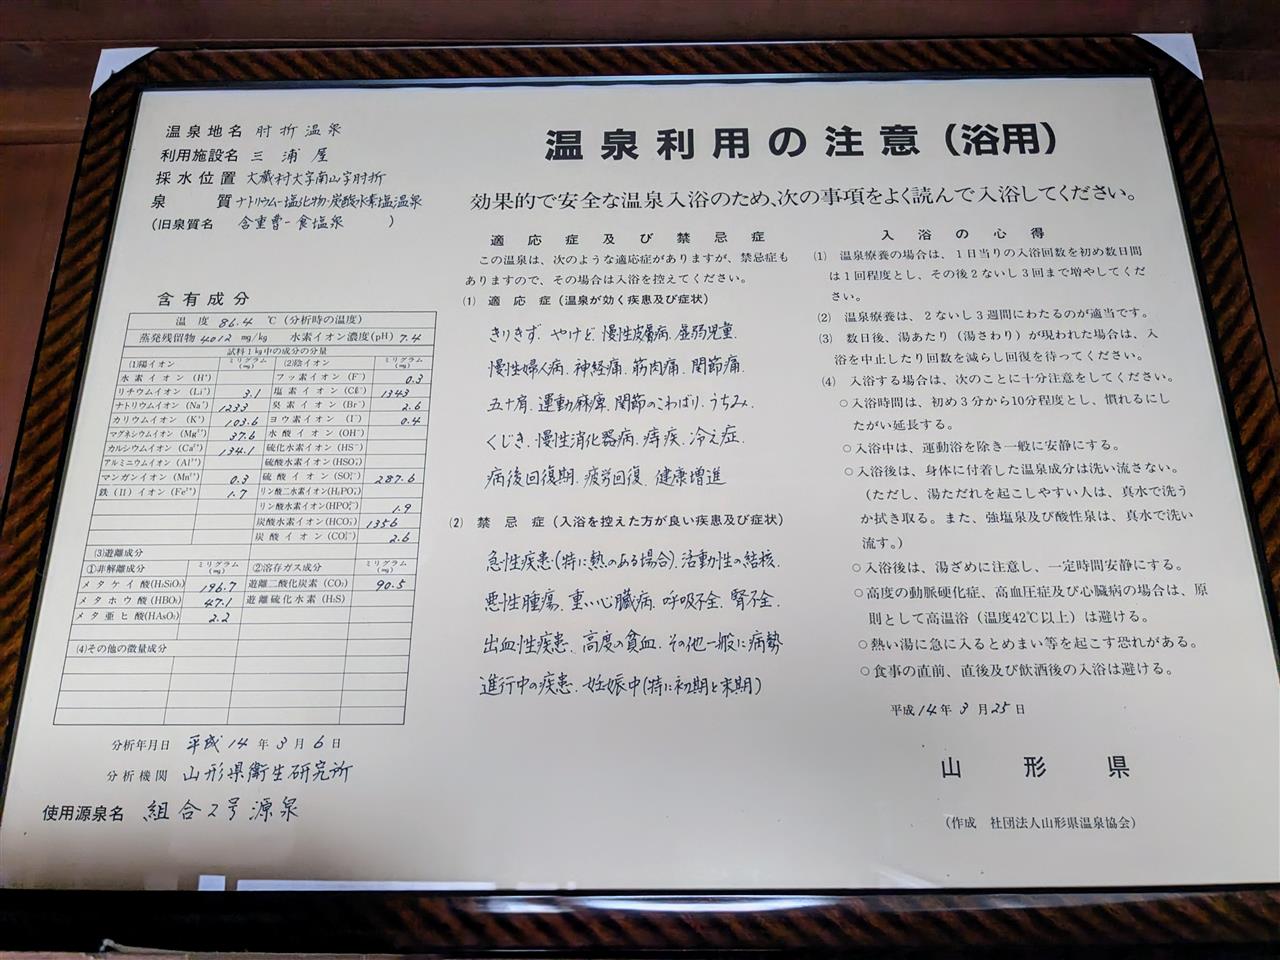 温泉地名 肘折温泉
利用施設名 三浦屋
採水位置 大蔵村大字南山字肘折
泉質 ナトリウムー塩化物・炭酸水素塩温泉
(旧泉質名 含重曹ー食塩泉 )
含有成分
温度 86.4 ℃(分析時の温度)
蒸発残留物 4012 mg/kg 水素イオン濃度(pH) 7.4
試料1kg中の成分の分量
(1)陽イオン ミリグラム(mg) (2)陰イオン ミリグラム(mg)
水素イオン (H⁺) フッ素イオン (F⁻) 0.3
リチウムイオン (Li⁺) 3.1 塩素イオン (Cℓ⁻) 1343
ナトリウムイオン (Na⁺) 1233 臭素イオン (Br⁻) 2.6
カリウムイオン (K⁺) 103.6 ヨウ素イオン (I⁻) 0.4
マグネシウムイオン (Mg²⁺) 37.6 水酸イオン (OH⁻)
カルシウムイオン (Ca²⁺) 134.1 硫化水素イオン (HS⁻)
アルミニウムイオン (Al³⁺) 硫酸水素イオン (HSO₄⁻)
マンガンイオン (Mn²⁺) 0.3 硫酸イオン (SO₄²⁻) 287.6
鉄(II)イオン (Fe²⁺) 1.7 リン酸二水素イオン(H₂PO₄⁻)
リン酸水素イオン(HPO₄²⁻) 1.9
炭酸水素イオン(HCO₃⁻) 1356
炭酸イオン (CO₃²⁻) 2.6
(3)遊離成分
①非解離成分 ミリグラム(mg) ②溶存ガス成分 ミリグラム(mg)
メタケイ酸(H₂SiO₃) 196.7 遊離二酸化炭素 (CO₂) 90.5
メタホウ酸(HBO₂) 47.1 遊離硫化水素 (H₂S)
メタ亜ヒ酸(HAsO₂) 2.2
(4)その他の微量成分
分析年月日 平成14年3月6日
分析機関 山形県衛生研究所
使用源泉名 組合2号源泉
温泉利用の注意(浴用)
効果的で安全な温泉入浴のため、次の事項をよく読んで入浴してください。
適応症及び禁忌症
この温泉は、次のような適応症がありますが、禁忌症も
ありますので、その場合は入浴を控えてください。
(1) 適応症(温泉が効く疾患及び症状)
きりきず. やけど. 慢性皮膚病. 虚弱児童.
慢性婦人病. 神経痛. 筋肉痛. 関節痛.
五十肩. 運動麻痺. 関節のこわばり. うちみ.
くじき. 慢性消化器病. 痔疾. 冷え症.
病後回復期. 疲労回復. 健康増進
(2) 禁忌症(入浴を控えた方が良い疾患及び症状)
急性疾患(特に熱のある場合). 活動性の結核.
悪性腫瘍. 重い心臓病. 呼吸不全. 腎不全.
出血性疾患. 高度の貧血. その他一般に病勢
進行中の疾患. 妊娠中(特に初期と末期)
入浴の心得
(1) 温泉療養の場合は、1日当りの入浴回数を初め数日間
は1回程度とし、その後2ないし3回まで増やしてくだ
さい。
(2) 温泉療養は、2ないし3週間にわたるのが適当です。
(3) 数日後、湯あたり(湯さわり)が現われた場合は、入
浴を中止したり回数を減らし回復を待ってください。
(4) 入浴する場合は、次のことに十分注意をしてください。
○入浴時間は、初め3分から10分程度とし、慣れるにし
たがい延長する。
○入浴中は、運動浴を除き一般に安静にする。
○入浴後は、身体に付着した温泉成分は洗い流さない。
(ただし、湯ただれを起こしやすい人は、真水で洗う
か拭き取る。また、強塩泉及び酸性泉は、真水で洗い
流す。)
○入浴後は、湯ざめに注意し、一定時間安静にする。
○高度の動脈硬化症、高血圧症及び心臓病の場合は、原
則として高温浴(温度42℃以上)は避ける。
○熱い湯に急に入るとめまい等を起こす恐れがある。
○食事の直前、直後及び飲酒後の入浴は避ける。
平成14年3月25日
山形県
(作成 社団法人山形県温泉協会)